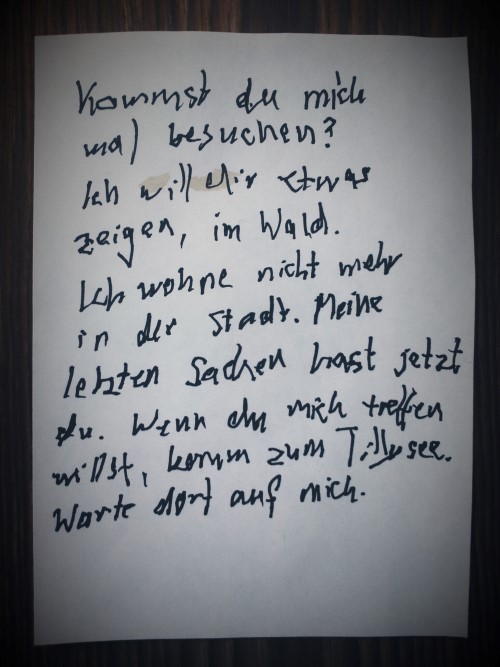 Kommst du mich
mal besuchen?
Ich will dir etwas
zeigen, im Wald.
Ich wohne nicht mehr
in der Stadt. Meine
letzten Sachen hast jetzt
du. Wenn du mich treffen
willst, komm zum Tillysee.
Warte dort auf mich.